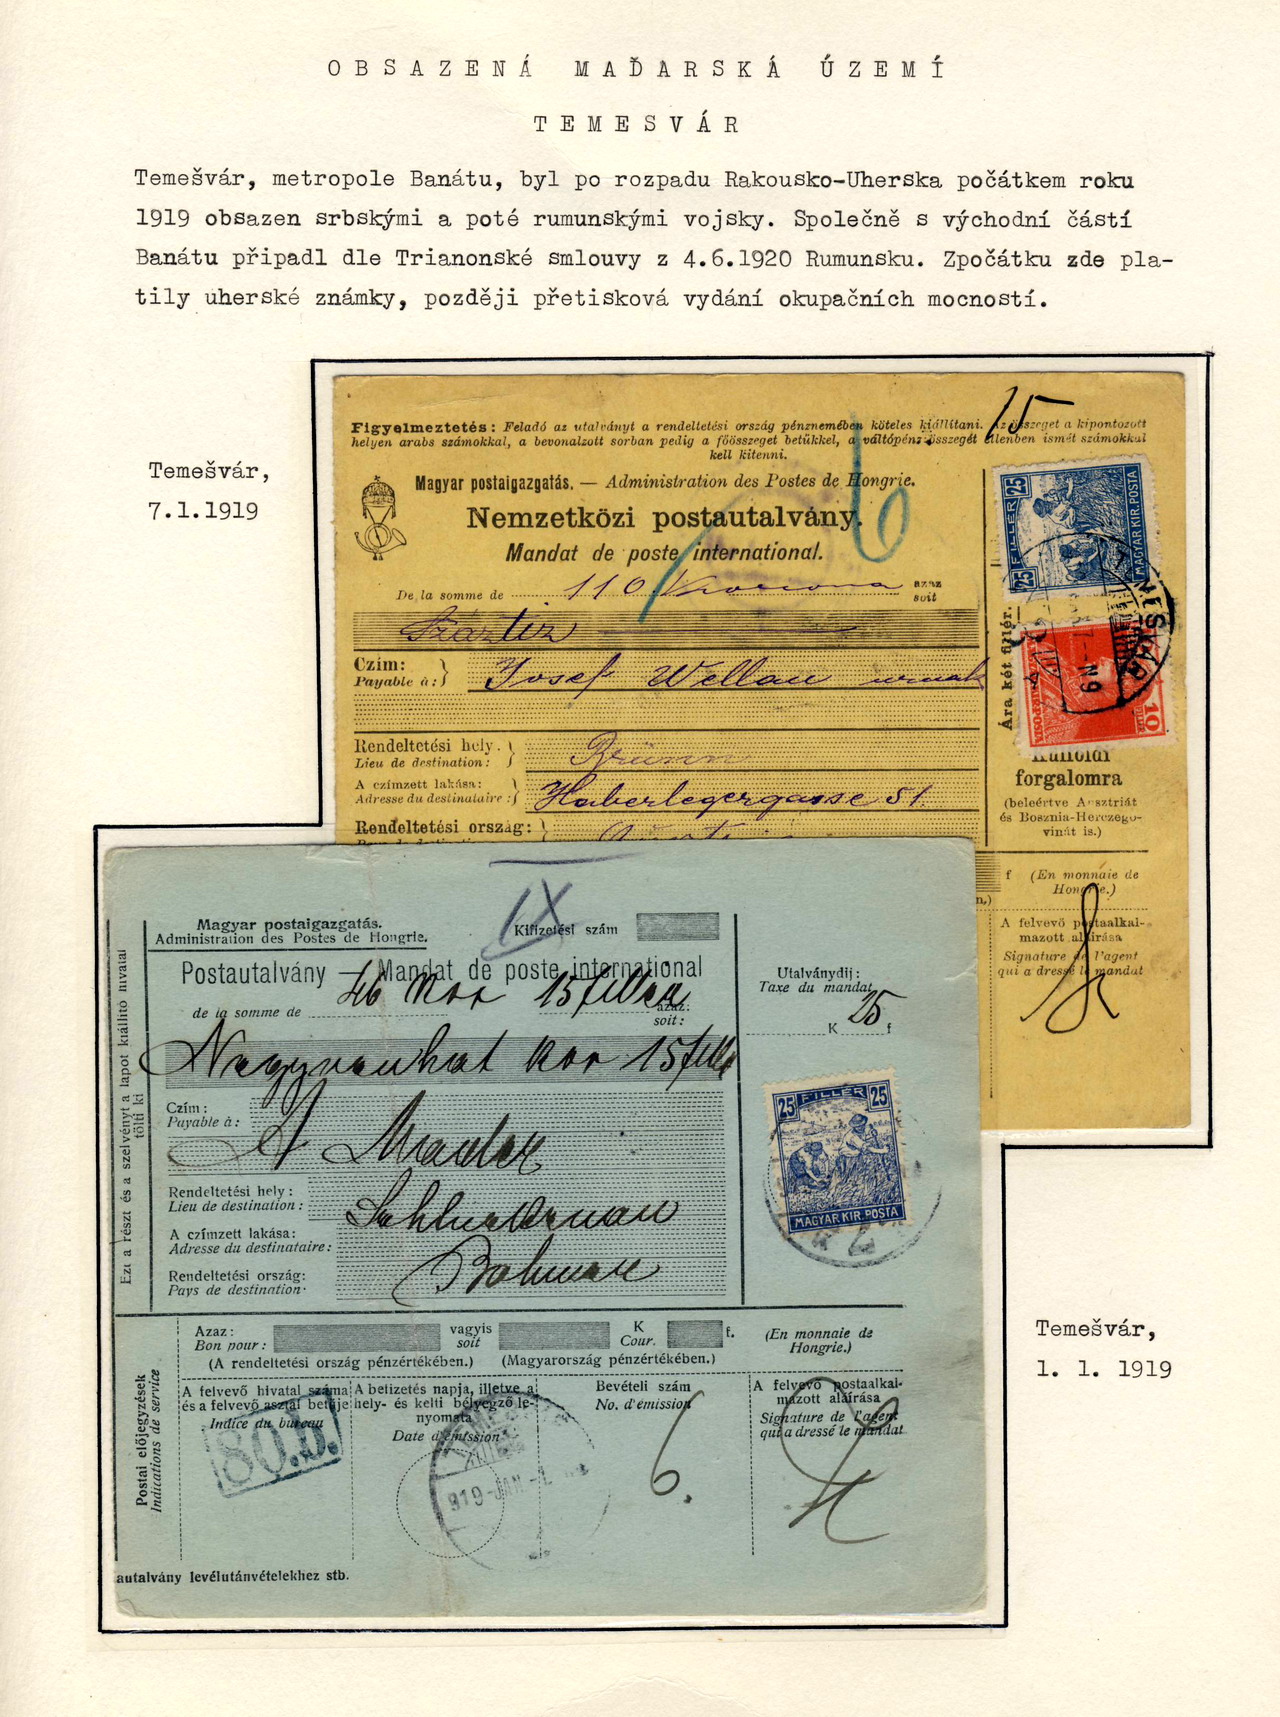 OBSAZENÁ MAĎARSKÁ ÚZEMÍ
TEMESVÁR
Temešvár, metropole Banátu, byl po rozpadu Rakousko-Uherska počátkem roku
1919 obsazen srbskými a poté rumunskými vojsky. Společně s východní částí
Banátu připadl dle Trianonské smlouvy z 4.6.1920 Rumunsku. Zpočátku zde pla-
tily uherské známky, později přetisková vydání okupačních mocností.
Temešvár,
7.1.1919
15
Figyelmeztetés: Feladó az utalványt a rendeltetési ország pénznemében köteles kiállítani. Az összeget a kipontozott
helyen arabs számokkal, a bevonalzott sorban pedig a főösszeget betükkel, a váltópénz összegét ellenben ismét számokkal
kell kitenni.
6
Magyar postaigazgatás. — Administration des Postes de Hongrie.
Nemzetközi postautalvány.
Mandat de poste international.
De la somme de 110 Korona azaz
soit
Száztiz
Czím:
Payable à:
Josef Wellan urnak
Rendeltetési hely.
Lieu de destination:
Brünn
A czímzett lakása:
Adresse du destinataire:
Haberlegergasse 51.
Rendeltetési ország:
25 FILLÉR 25
MAGYAR KIR. POSTA
10
Ára két fillér.
Külföldi
forgalomra
(beleértve Ausztriát
és Bosznia-Herczego-
vinát is.)
f (En monnaie de
Hongrie.)
A felvevő postaalkal-
mazott aláírása
Signature de l'agent
qui a dressé le mandat
IX
Magyar postaigazgatás.
Administration des Postes de Hongrie.
Kifizetési szám
Postautalvány — Mandat de poste international
de la somme de 46 Kor 15 fillér
azaz:
soit:
Negyvenhat Kor 15 fillér
Utalványdíj:
Taxe du mandat
K 25 f
Ezt a részt és a szelvényt a lapot kiállító hivatal
tölti ki
Czím:
Payable à:
A Mader
Rendeltetési hely:
Lieu de destination:
A czímzett lakása:
Adresse du destinataire:
Rendeltetési ország:
Pays de destination
25 FILLÉR 25
MAGYAR KIR. POSTA
Azaz:
Bon pour:
vagyis
soit
K
Cour.
f.
(En monnaie de
Hongrie.)
(A rendeltetési ország pénzértékében.)
(Magyarország pénzértékében.)
Postai előjegyzések
Indications de service
A felvevő hivatal száma
és a felvevő asztal betűje
Indice du bureau
80.b.
A befizetés napja, illetve a
hely- és kelti bélyegző le-
nyomata
Date d'émission
919-JAN.-1.
Bevételi szám
No. d'émission
6.
A felvevő postaalkal-
mazott aláírása
Signature de l'agent
qui a dressé le mandat
autalvány levélutánvételekhez stb.
Temešvár,
1. 1. 1919